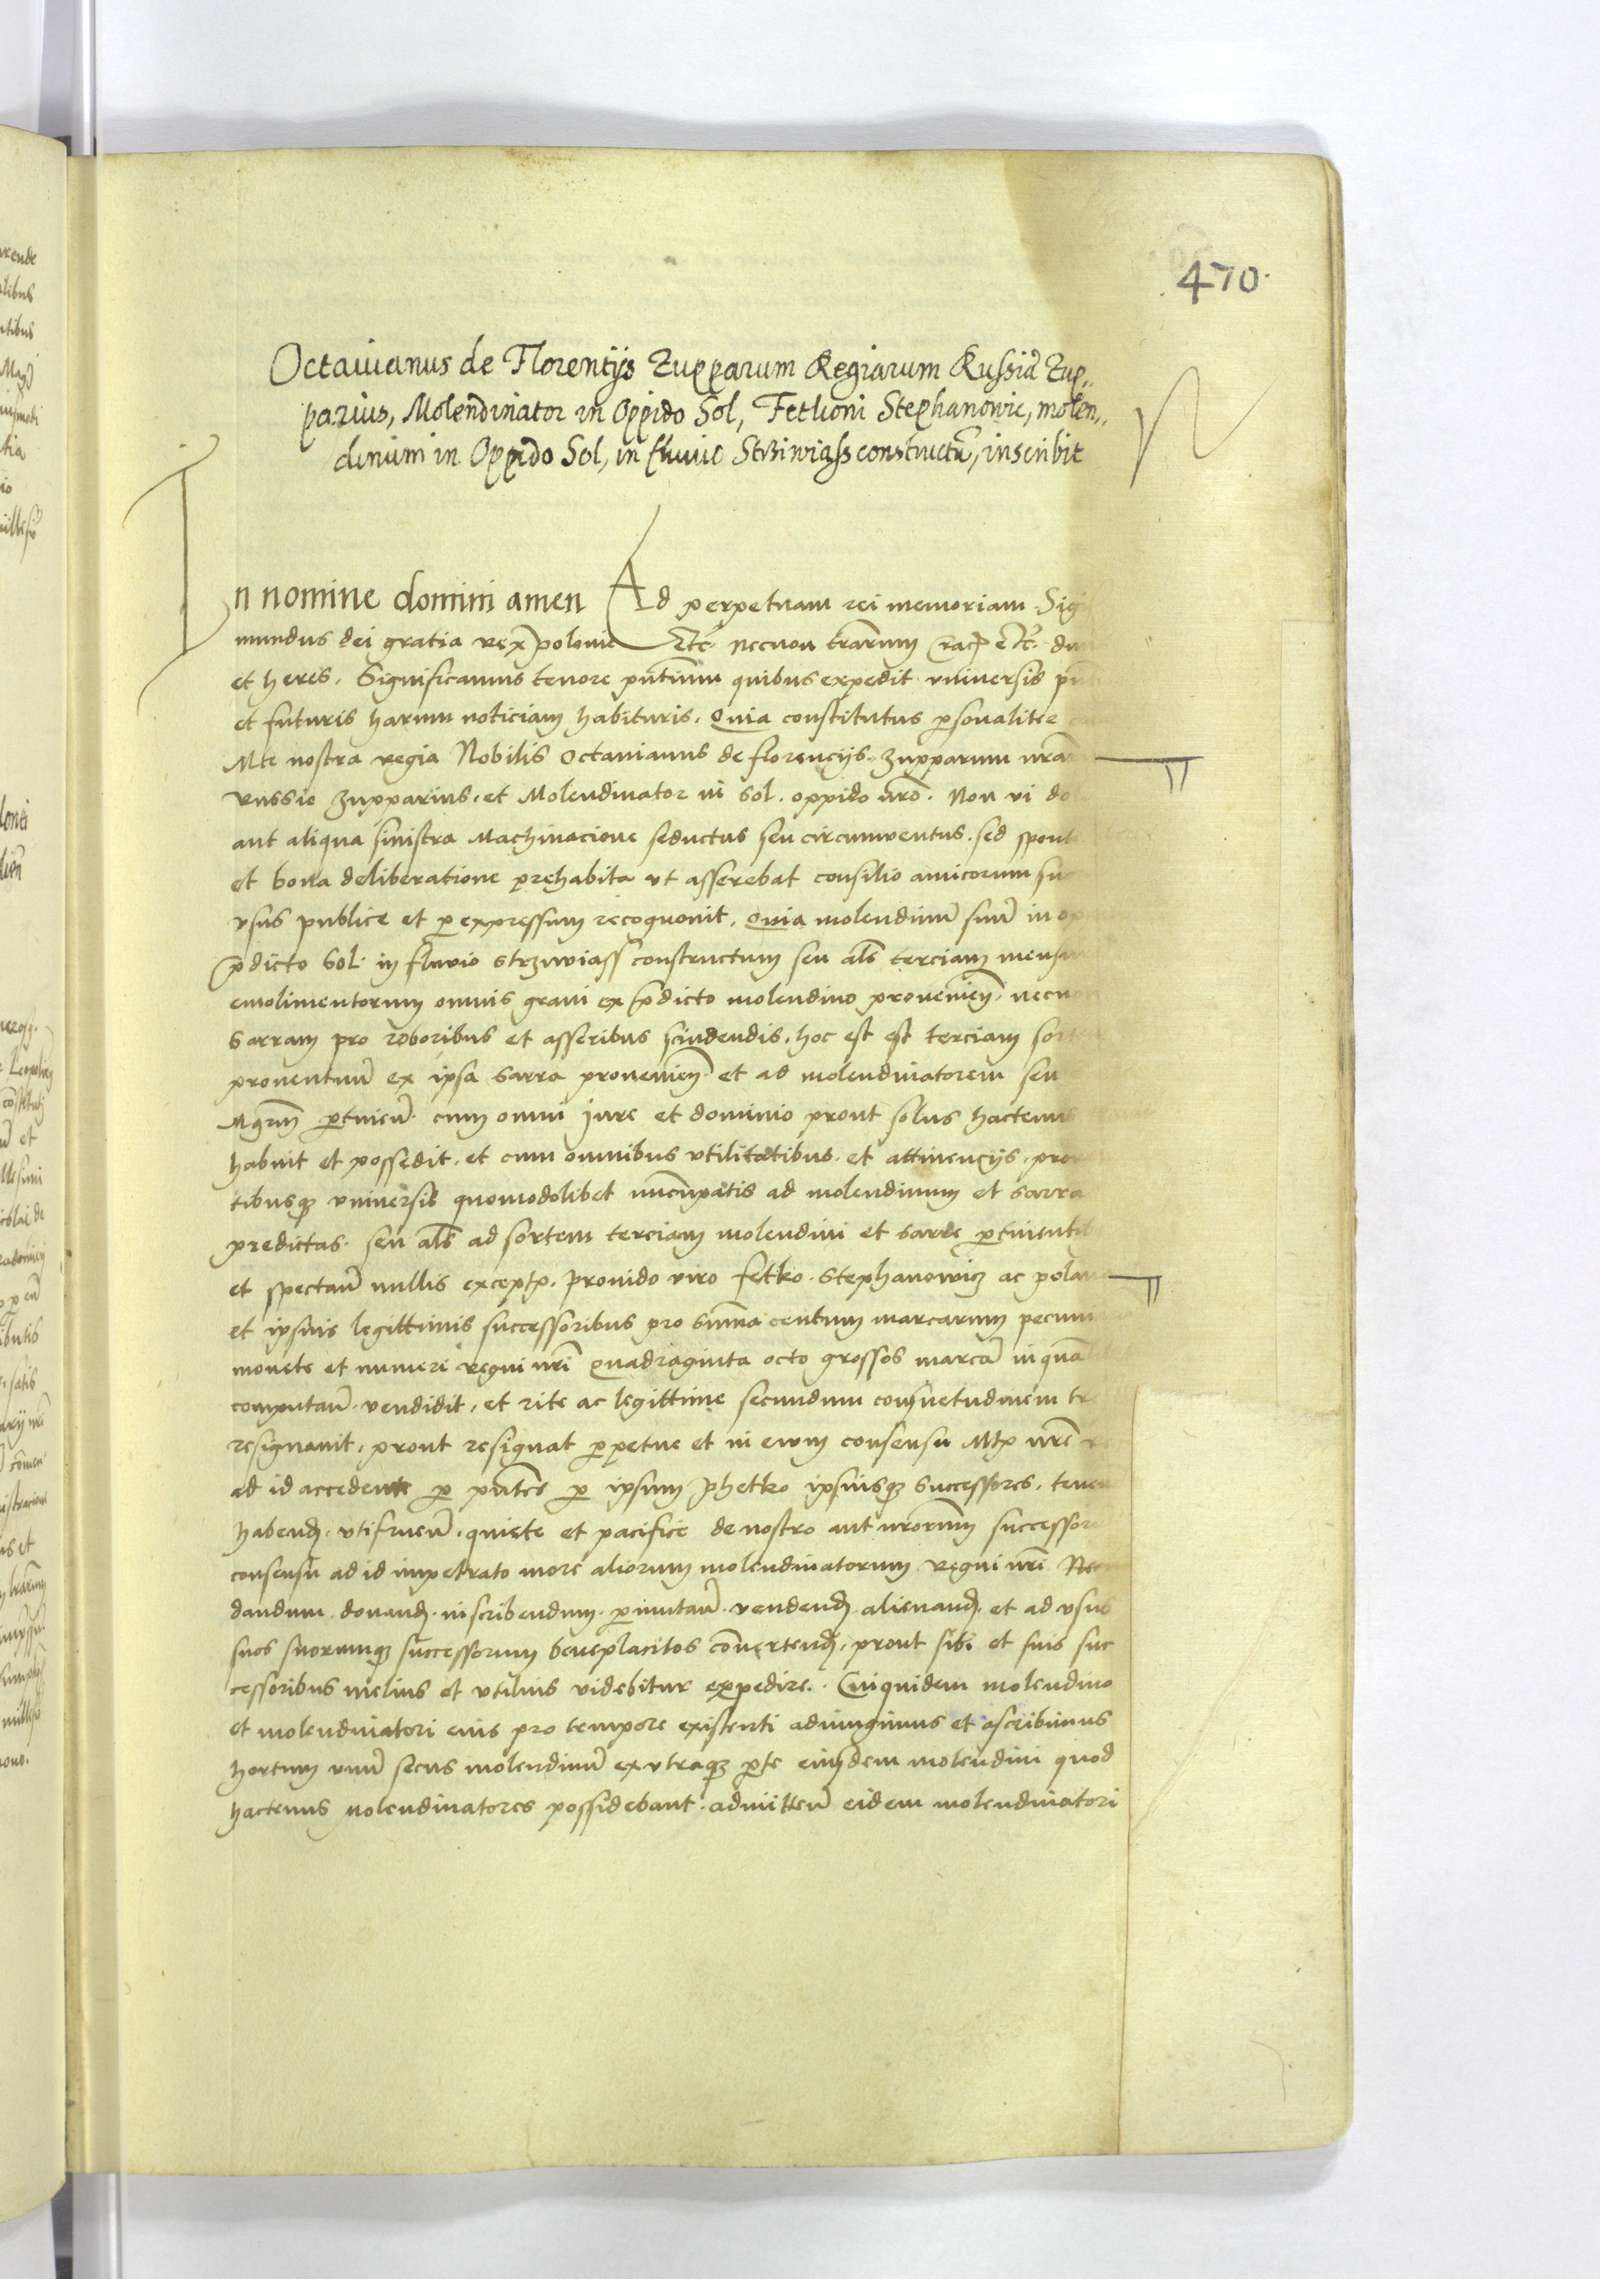 470.
Octavianus de Florentijs Zupparum Regiarum Russiæ Zup-
parius, Molendinator in Oppido Sol, Fetkoni Stephanowic, molen-
dinum in Oppido Sol, in fluvio Strziwiass constructū, inscribit
In nomine domini amen Ad perpetuam rei memoriam Sigis
mundus dei gratia rex polonie Etc. necnon trarum etc.
et heres. Significamus tenore pntium quibus expedit vniversis
et futuris harum noticiam habituris. Quia constitutus personaliter
Mte nostra regia Nobilis Octavianus de florencijs. zupparum nrarum
russie zupparius. et Molendinator in Sol. oppido nro. Non vi dolo
aut aliqua sinistra Machinacione seductus seu circumventus. sed sponte
et bona deliberatione prehabita vt asserebat consilio amicorum
vsus publice et per expressum recognovit. Quia molendinū suū in
pdicto Sol. in fluvio strzuviass constructum seu als terciam mensuram
emolimentorum omnis grani ex pdicto molendino provenien. necnon
Sarram pro roboribus et asseribus scindendis. hoc est est terciam sortem
proventuū ex ipsa sarra provenien. et ad molendinatorem seu
Mgrum ptineñ. cum omni jure et dominio prout solus hactenus
habuit et possedit. et cum omnibus vtilitatibus. et attinencijs.
tibusq vniversis quomodolibet nūcupatis ad molendinum et sarra
predictas. seu als ad sortem terciam molendini et sarre ptinentib
et spectañ nullis exceptis. Provido viro fetko. Stephanowicz ac
et ipsius legittimis successoribus pro summa centum marcarum pecunie
monete et numeri regni nri Quadraginta octo grossos marcā in quālibet
computañ. vendidit. et rite ac legittime secundum consuetudinem
resignavit. prout resignat perpetue et in evum consensu Mtis nre
ad id accedente per pntes per ipsum phetko ipsiusq successores.
habend. vtifrueñ. quiete et pacifice de nostro aut nrorum successorum
consensu ad id impetrato more aliorum molendinatorum regni nri.
dandum. donand. inscribendum. pmutañ. vendend alienand. et ad vsus
suos suorumq successorum beneplacitos convertend. prout sibi et suis suc
cessoribus melius et vtilius videbitur expedire. Cuiquidem molendino
et molendinatori eius pro tempore existenti adiungimus et ascribimus
hortum vnū secus molendinū ex vtraq pte eiusdem molendini quod
hactenus molendinatores possidebant. admitteñ eidem molendinatori